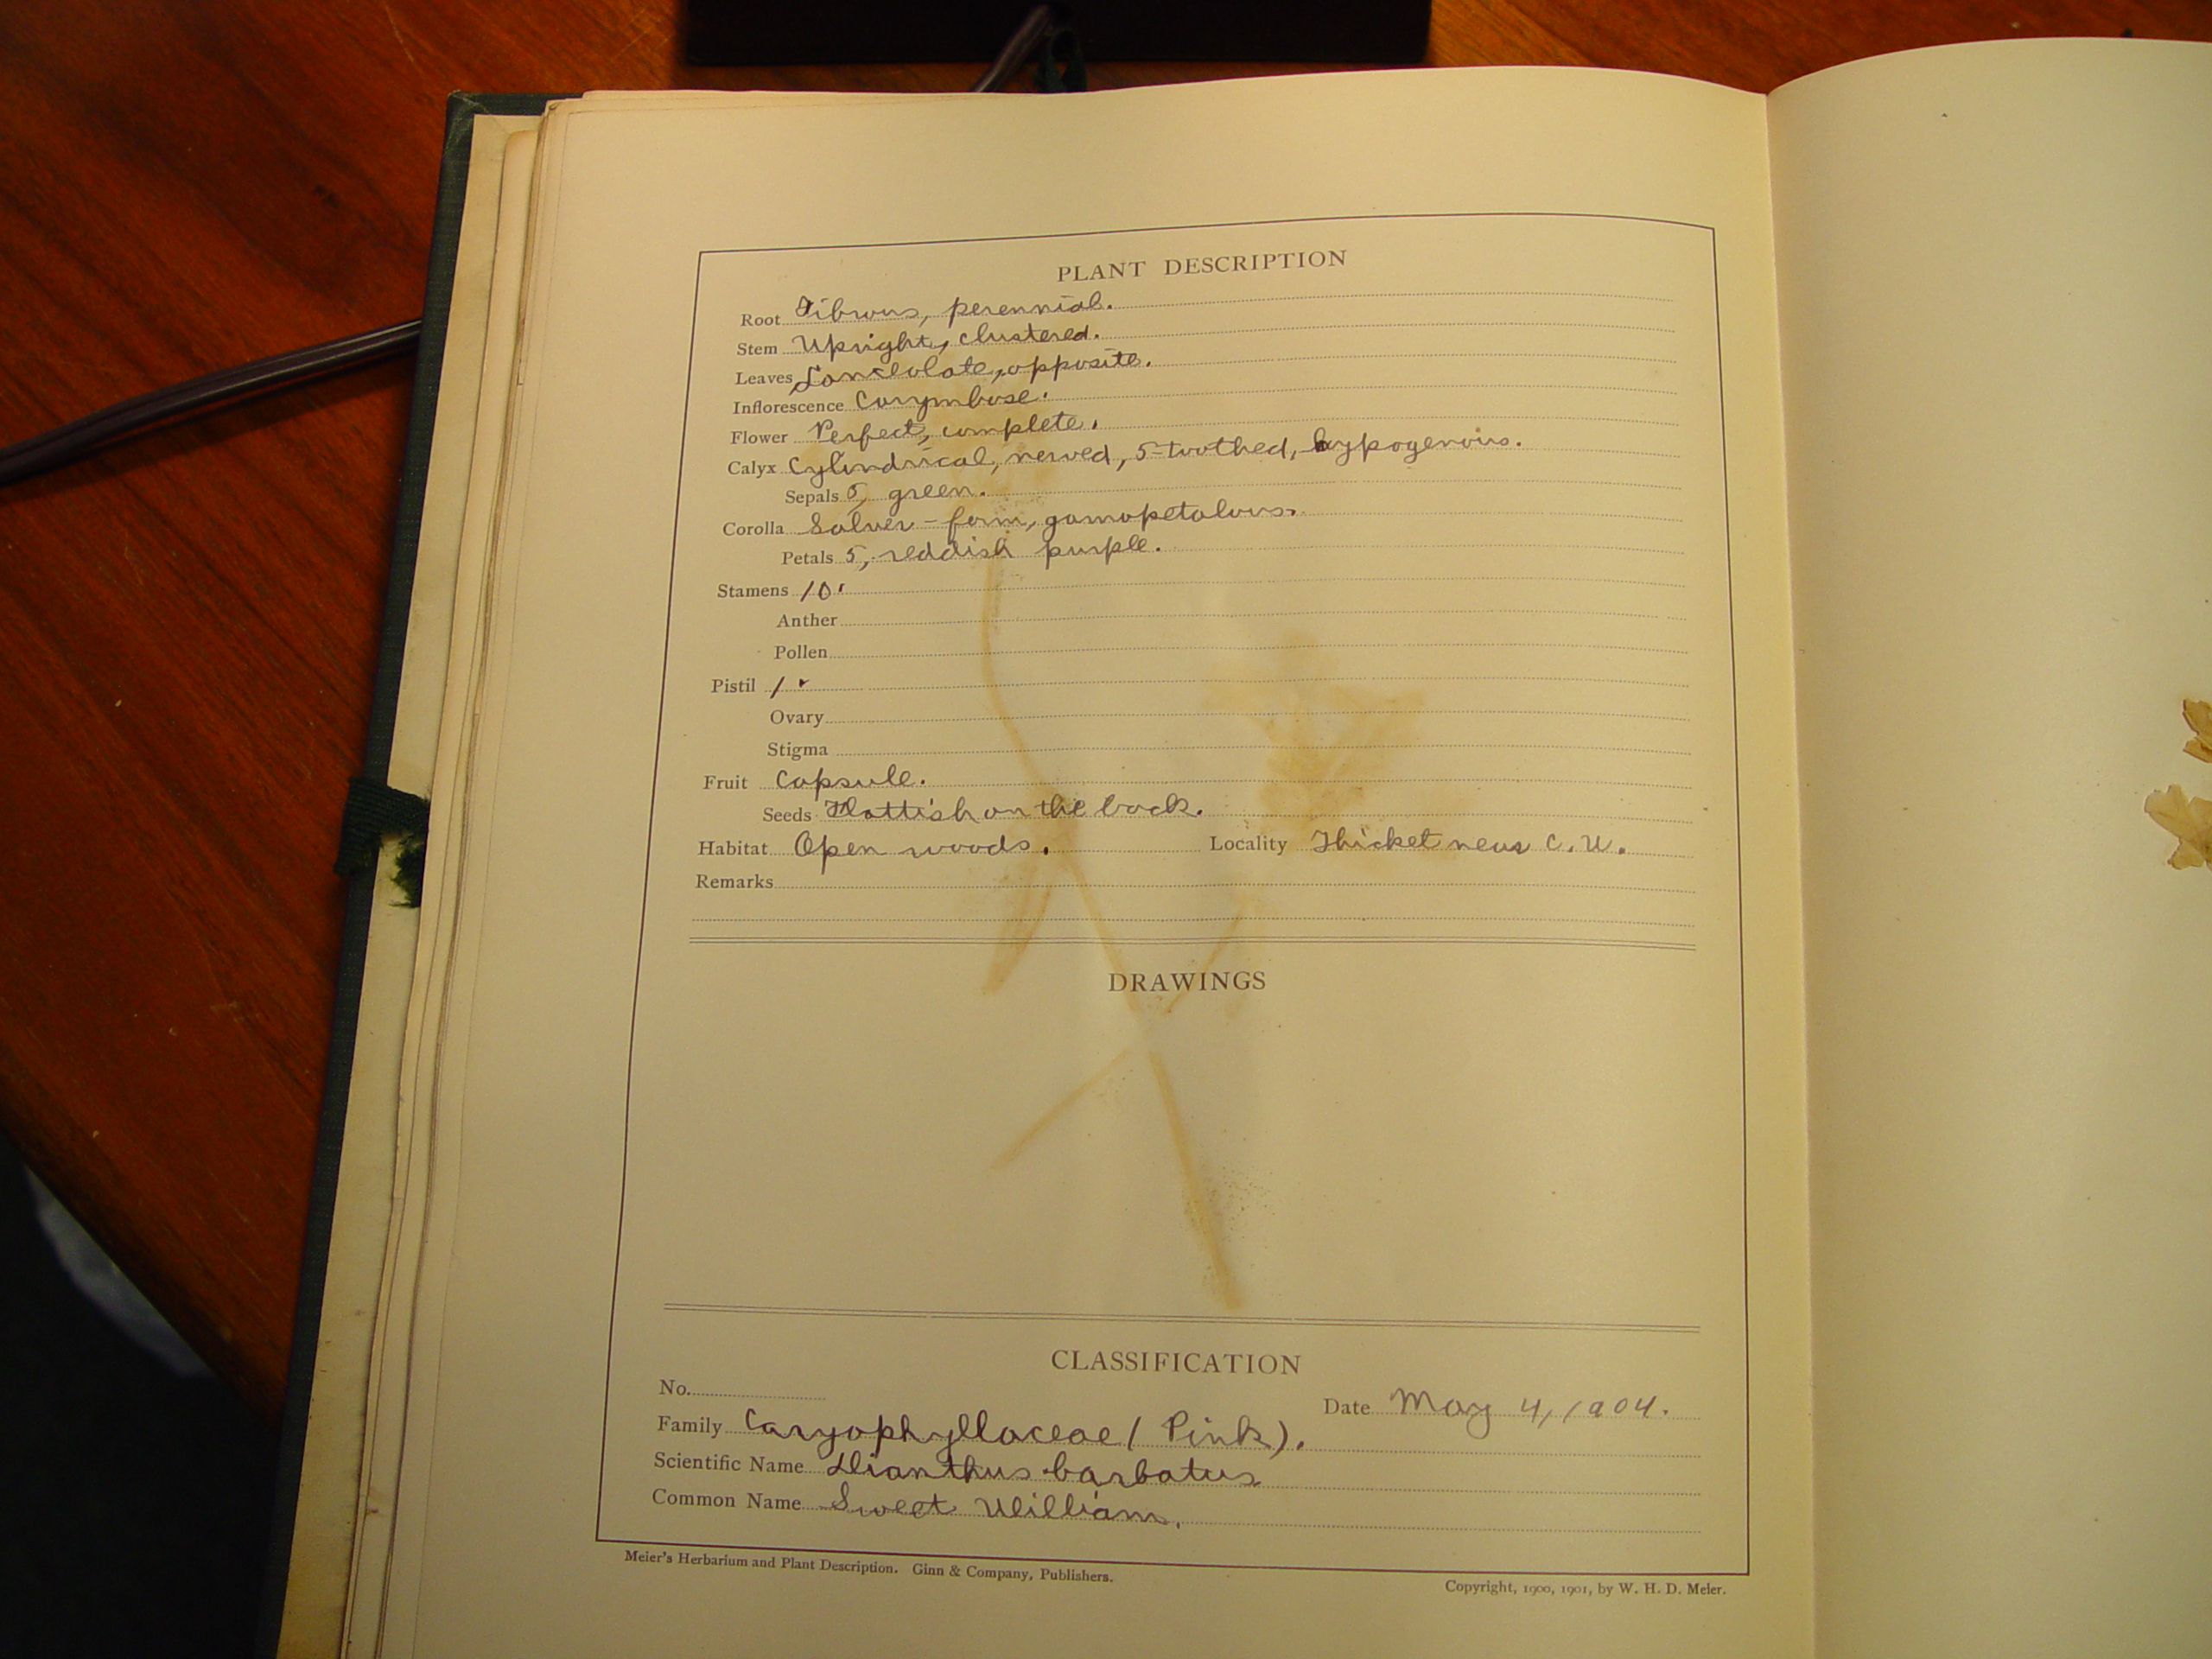 PLANT DESCRIPTION
Root Fibrous, perennial.
Stem Upright, clustered.
Leaves Lanceolate, opposite.
Inflorescence Corymbose.
Flower Perfect, complete.
Calyx Cylindrical, nerved, 5-toothed, hypogenous.
Sepals 5, green.
Corolla Salver-form, gamopetalous.
Petals 5, reddish purple.
Stamens 10.
Anther
Pollen
Pistil 1.
Ovary
Stigma
Fruit Capsule.
Seeds Flattish on the back.
Habitat Open woods. Locality Thicket near C. U.
Remarks
DRAWINGS
CLASSIFICATION
No. Date May 4, 1904.
Family Caryophyllaceae (Pink).
Scientific Name Dianthus barbatus
Common Name Sweet William.
Meier's Herbarium and Plant Description. Ginn & Company, Publishers.
Copyright, 1900, 1901, by W. H. D. Meier.